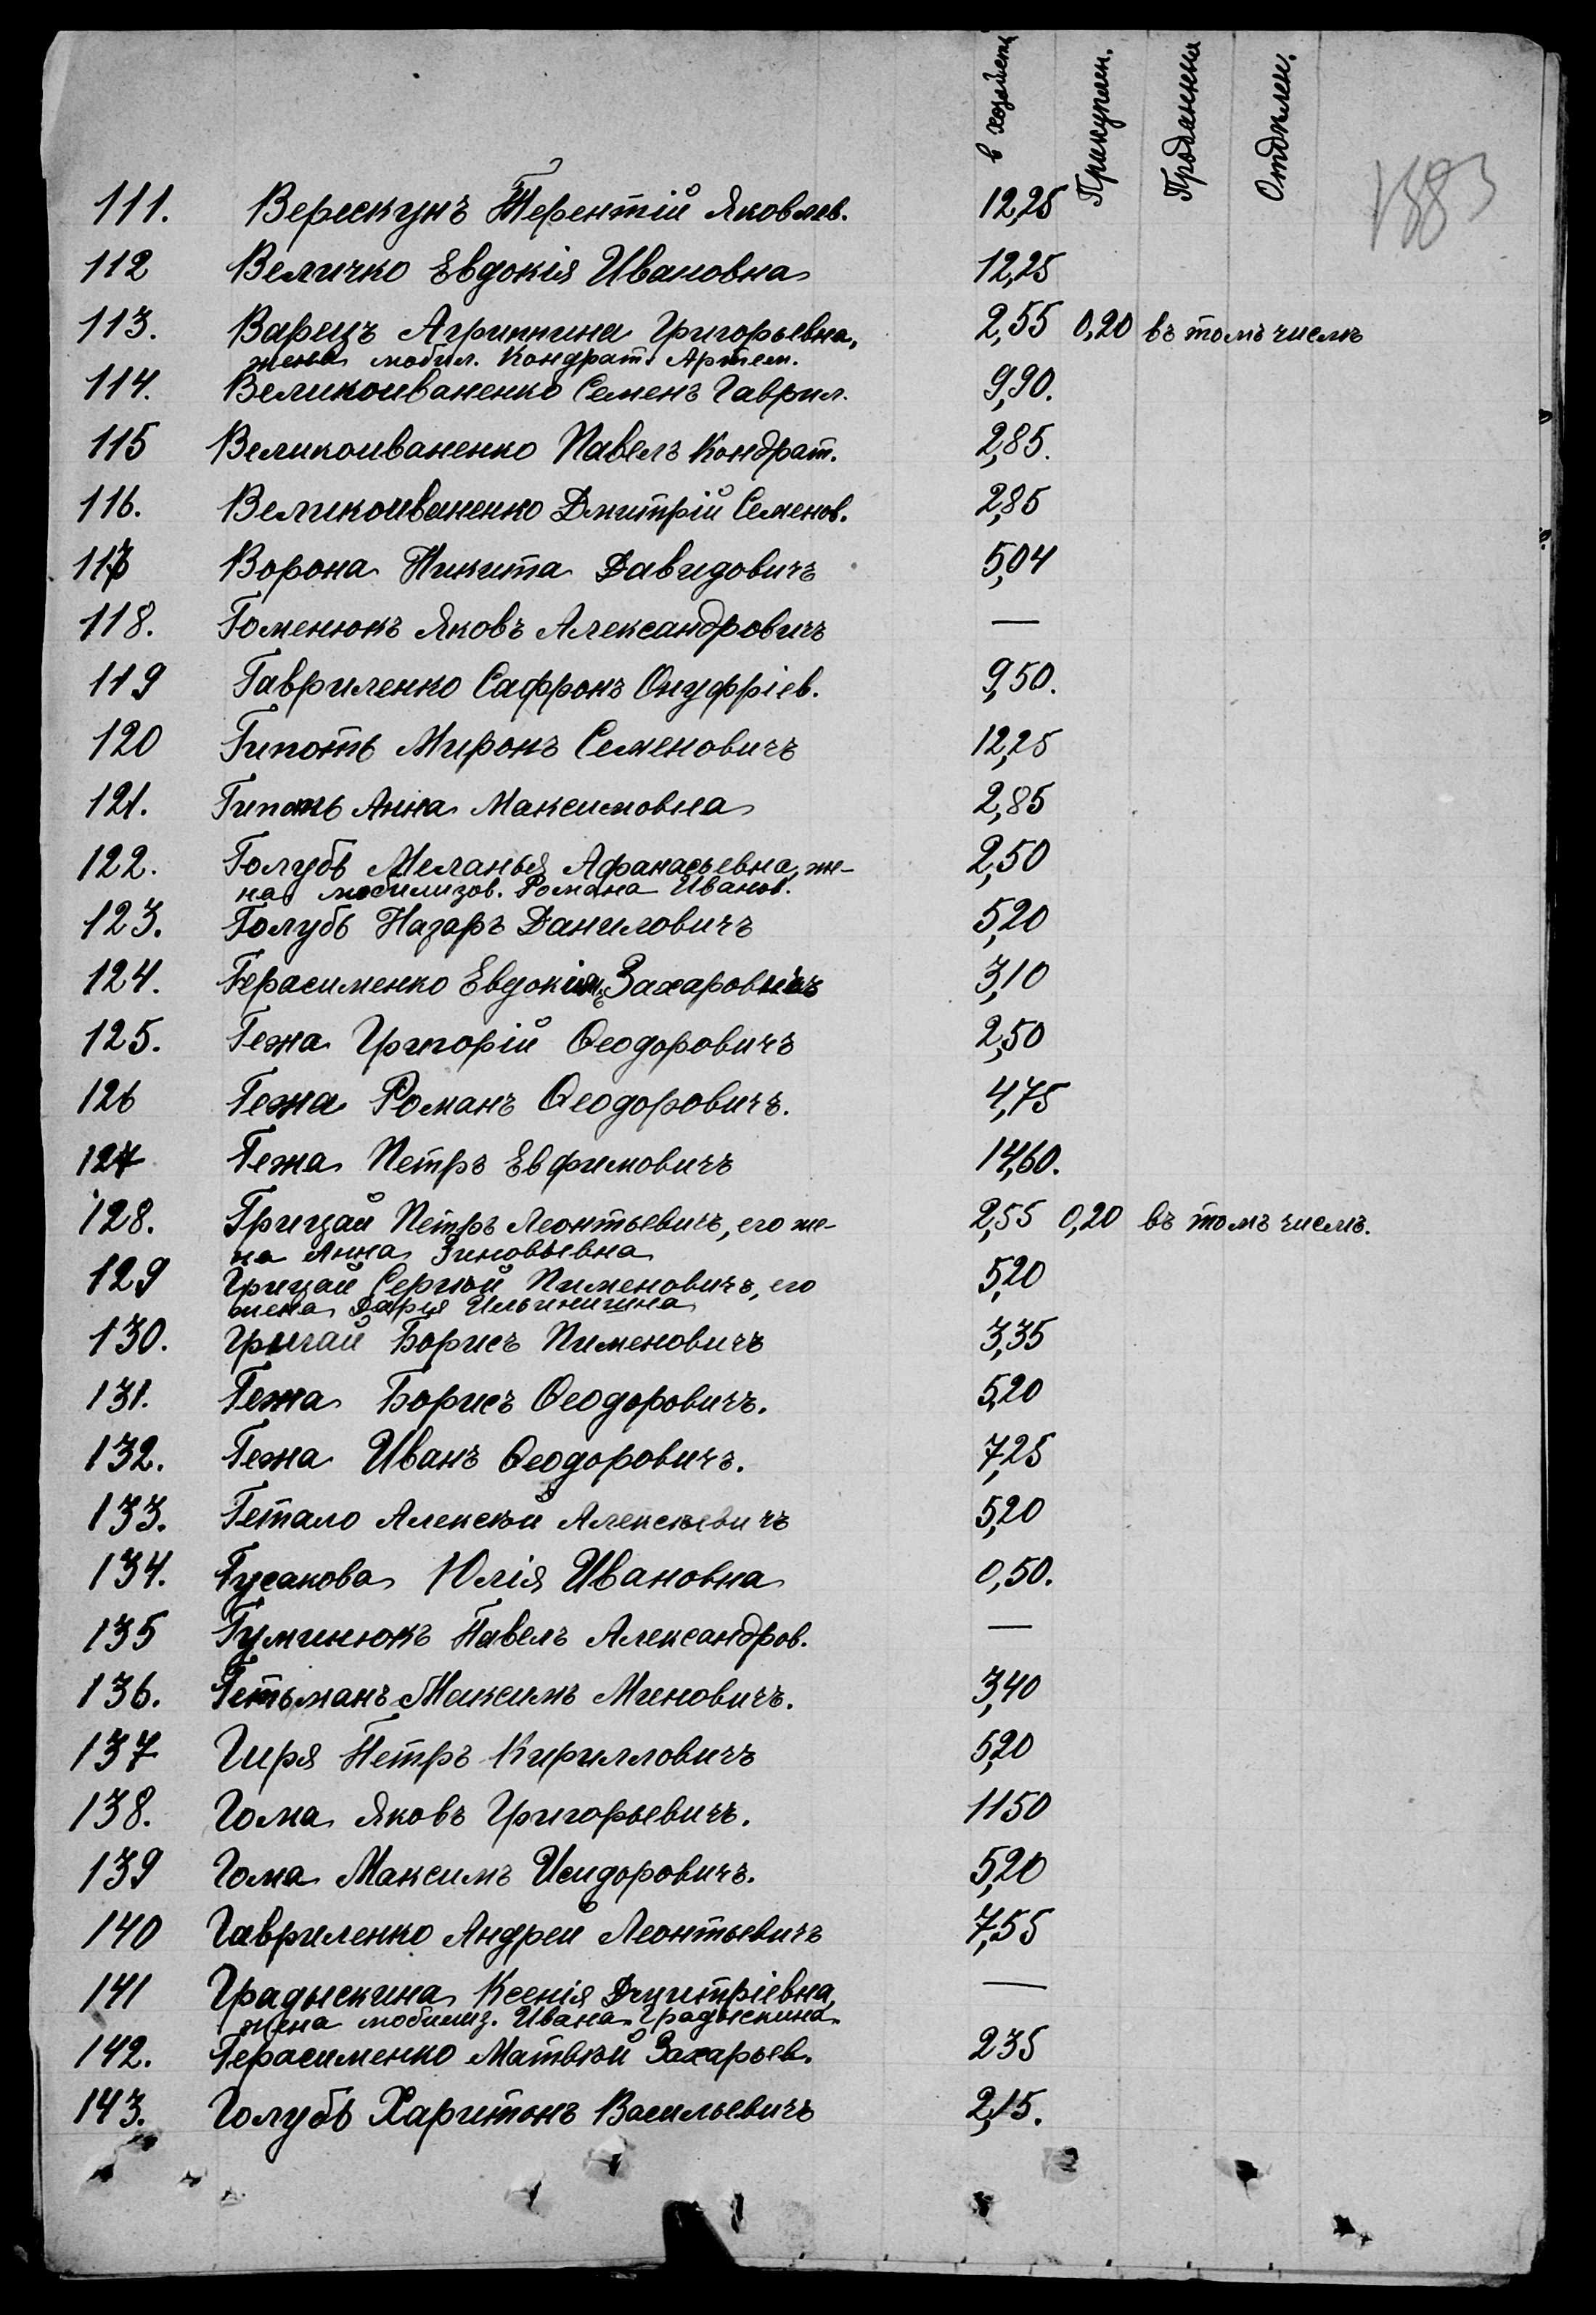 в хозяйств. Прикуплен. Проданныя Отдѣлен.
1883
111. Верескунъ Терентій Яковлев. 12,25
112 Величко Евдокія Ивановна 12,25
113. Варецъ Агрипнина Григорьевна, 2,55 0,20 въ томъ числѣ
жена мобил. Кондрат. Артем.
114. Великоиваненко Семенъ Гаврил. 9,90.
115 Великоиваненко Павелъ Кондрат. 2,85.
116. Великоиваненко Дмитрій Семенов. 2,85
117 Ворона Никита Давидовичъ 5,04
118. Гоменюкъ Яковъ Александровичъ —
119 Гавриленко Сафронъ Онуфріев. 9,50.
120 Гипоть Миронъ Семеновичъ 12,25
121. Гипоть Анна Максимовна 2,85
122. Голубь Меланья Афанасьевна, же- 2,50
на мобилизов. Романа Иванов.
123. Голубь Назаръ Даниловичъ 5,20
124. Герасименко Евдокимъ Захаровичъ 3,10
125. Гежа Григорій Ѳеодоровичъ 2,50
126 Гежа Романъ Ѳеодоровичъ. 4,75
127 Гежа Петръ Евфимовичъ 14,60.
128. Грицай Петръ Леонтьевичъ, его же- 2,55 0,20 въ томъ числѣ.
на Анна Зиновьевна
129 Грицай Сергѣй Пименовичъ, его 5,20
жена Дарья Ильинишна
130. Грицай Борисъ Пименовичъ 3,35
131. Гежа Борисъ Ѳеодоровичъ. 5,20
132. Гежа Иванъ Ѳеодоровичъ. 7,25
133. Гетало Алексѣй Алексѣевичъ 5,20
134. Гусакова Юлія Ивановна 0,50.
135 Гуминюкъ Павелъ Александров. —
136. Гетьманъ Максимъ Миновичъ. 3,40
137 Гиря Петръ Кирилловичъ 5,20
138. Гома Яковъ Григорьевичъ. 1150
139 Гома Максимъ Исидоровичъ. 5,20
140 Гавриленко Андрей Леонтьевичъ 7,55
141 Градыскина Ксенія Дмитріевна, —
жена мобилиз. Ивана Градыскина
142. Герасименко Матвѣй Захарьев. 235
143. Голубь Харитонъ Васильевичъ 2,15.